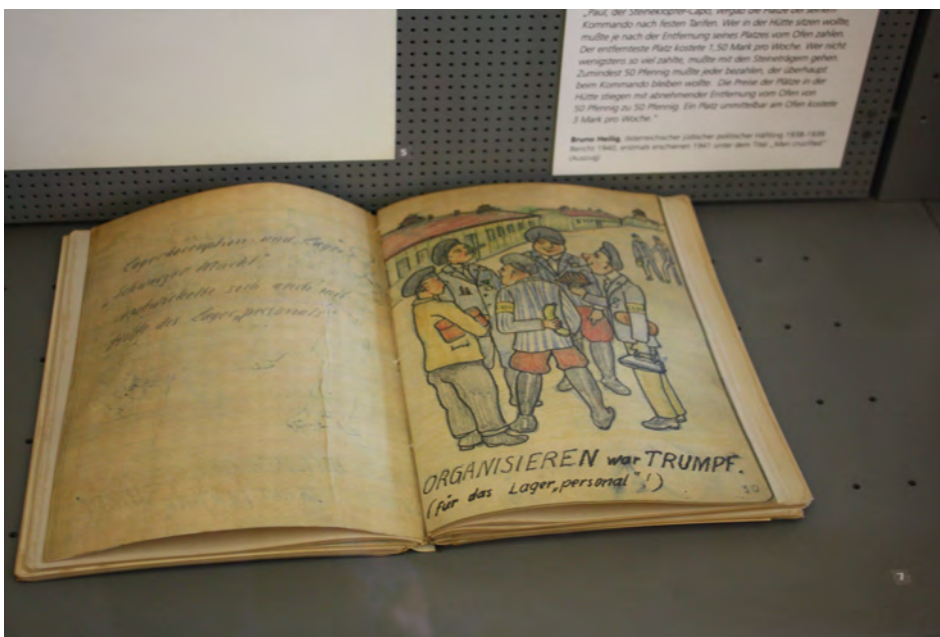 „Paul, der Steineklopfer-Capo, vergab die Plätze bei seinem
Kommando nach festen Tarifen. Wer in der Hütte sitzen wollte,
mußte je nach der Entfernung seines Platzes vom Ofen zahlen.
Der entfernteste Platz kostete 1,50 Mark pro Woche. Wer nicht
wenigstens so viel zahlte, mußte mit den Steineträgern gehen.
Zumindest 50 Pfennig mußte jeder bezahlen, der überhaupt
beim Kommando bleiben wollte. Die Preise der Plätze in der
Hütte stiegen mit abnehmender Entfernung vom Ofen von
50 Pfennig zu 50 Pfennig. Ein Platz unmittelbar am Ofen kostete
3 Mark pro Woche."
Bruno Heilig, österreichischer jüdischer politischer Häftling 1938-1939
Bericht 1940, erstmals erschienen 1941 unter dem Titel „Men crucified"
(Auszug)
5
Lagerkorruption und Lager
„schwarzer Markt"
entwickelte sich auch mit
des Lager„personals"
ORGANISIEREN war TRUMPF.
(für das Lager„personal"!)
30
7